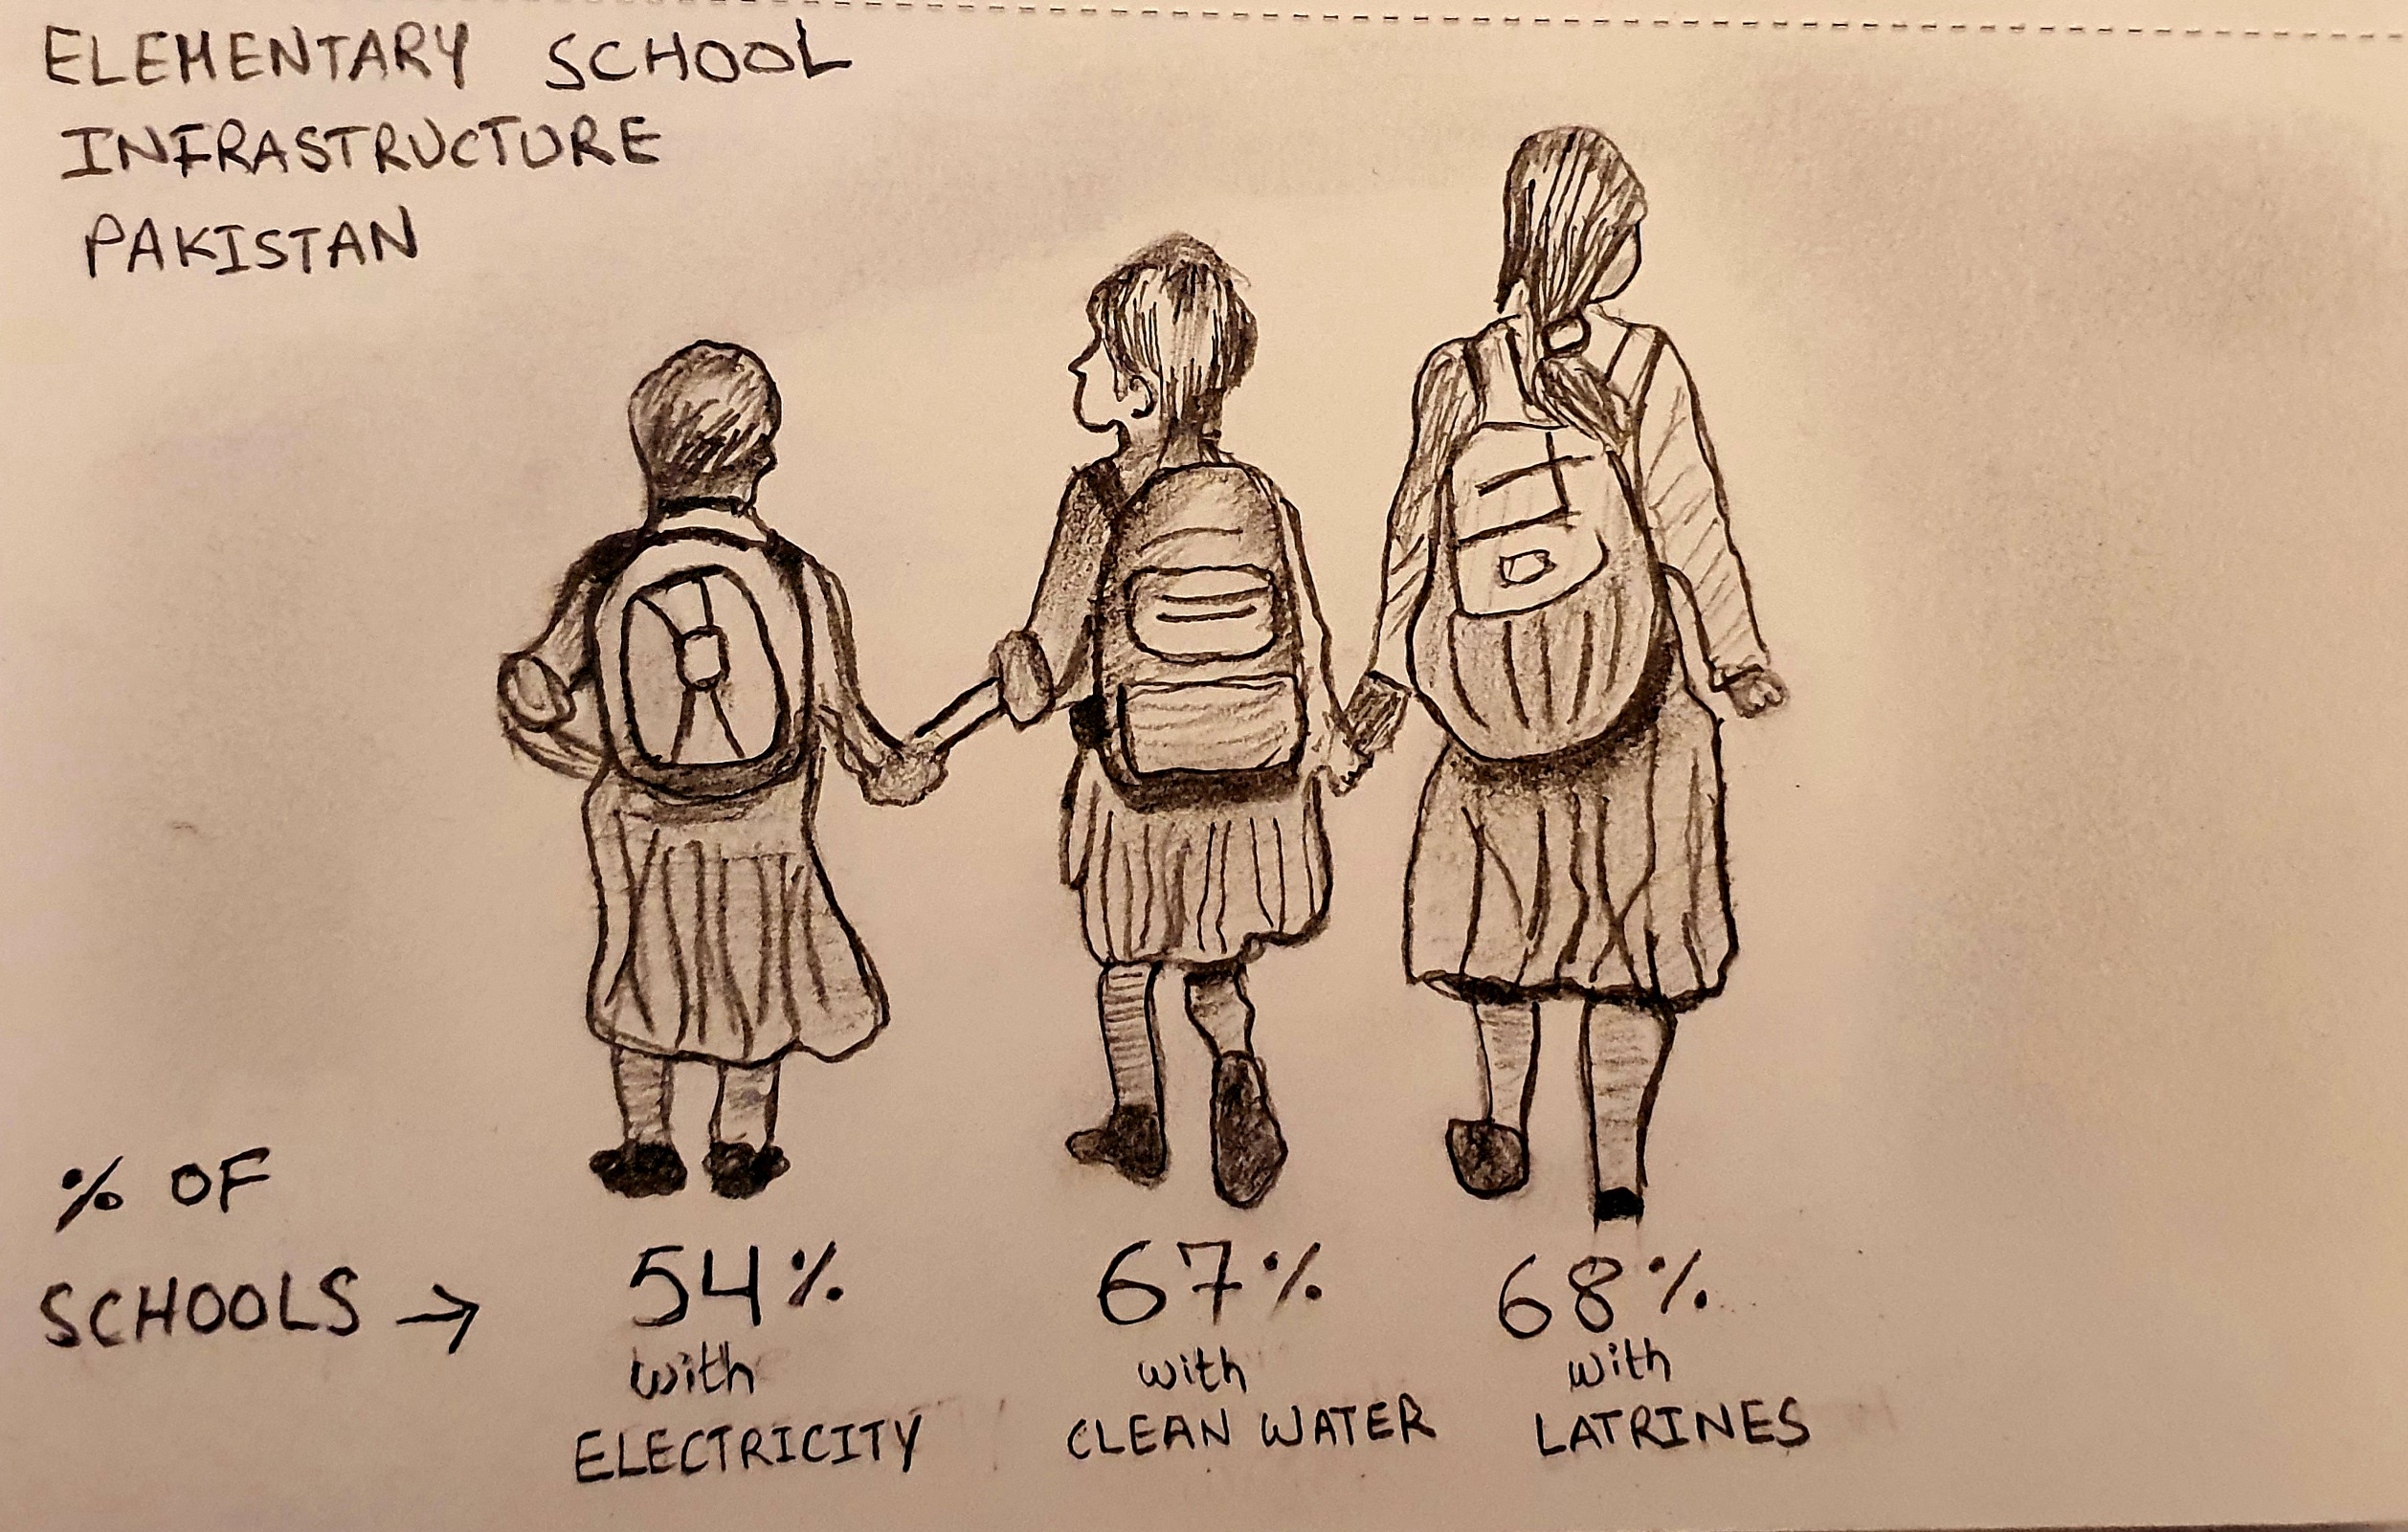 ELEMENTARY SCHOOL
INFRASTRUCTURE
PAKISTAN
% OF
SCHOOLS →
54%
with
ELECTRICITY
67%
with
CLEAN WATER
68%
with
LATRINES